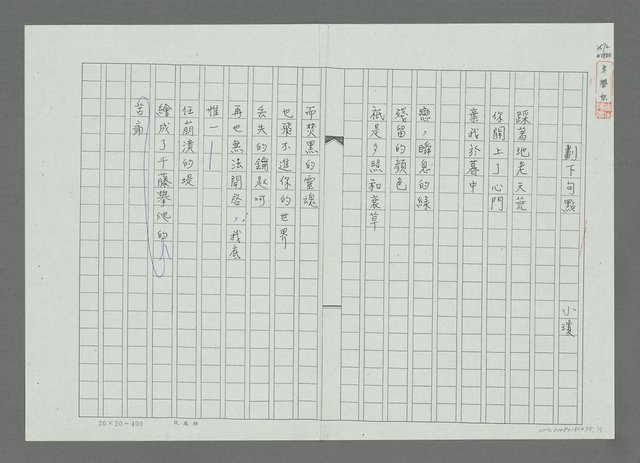 劃下句點
小瓊
踩著地老天荒
你關上了心門
棄我於暮中
戀，瞬息的綠
殘留的顏色
祇是夕照和衰草
而焚黑的靈魂
也飛不進你的世界
丟失的鑰匙呵
再也無法開啓，我底
惟一
任崩潰的堤
繪成了千藤攀他的
苦痛
20×20=400